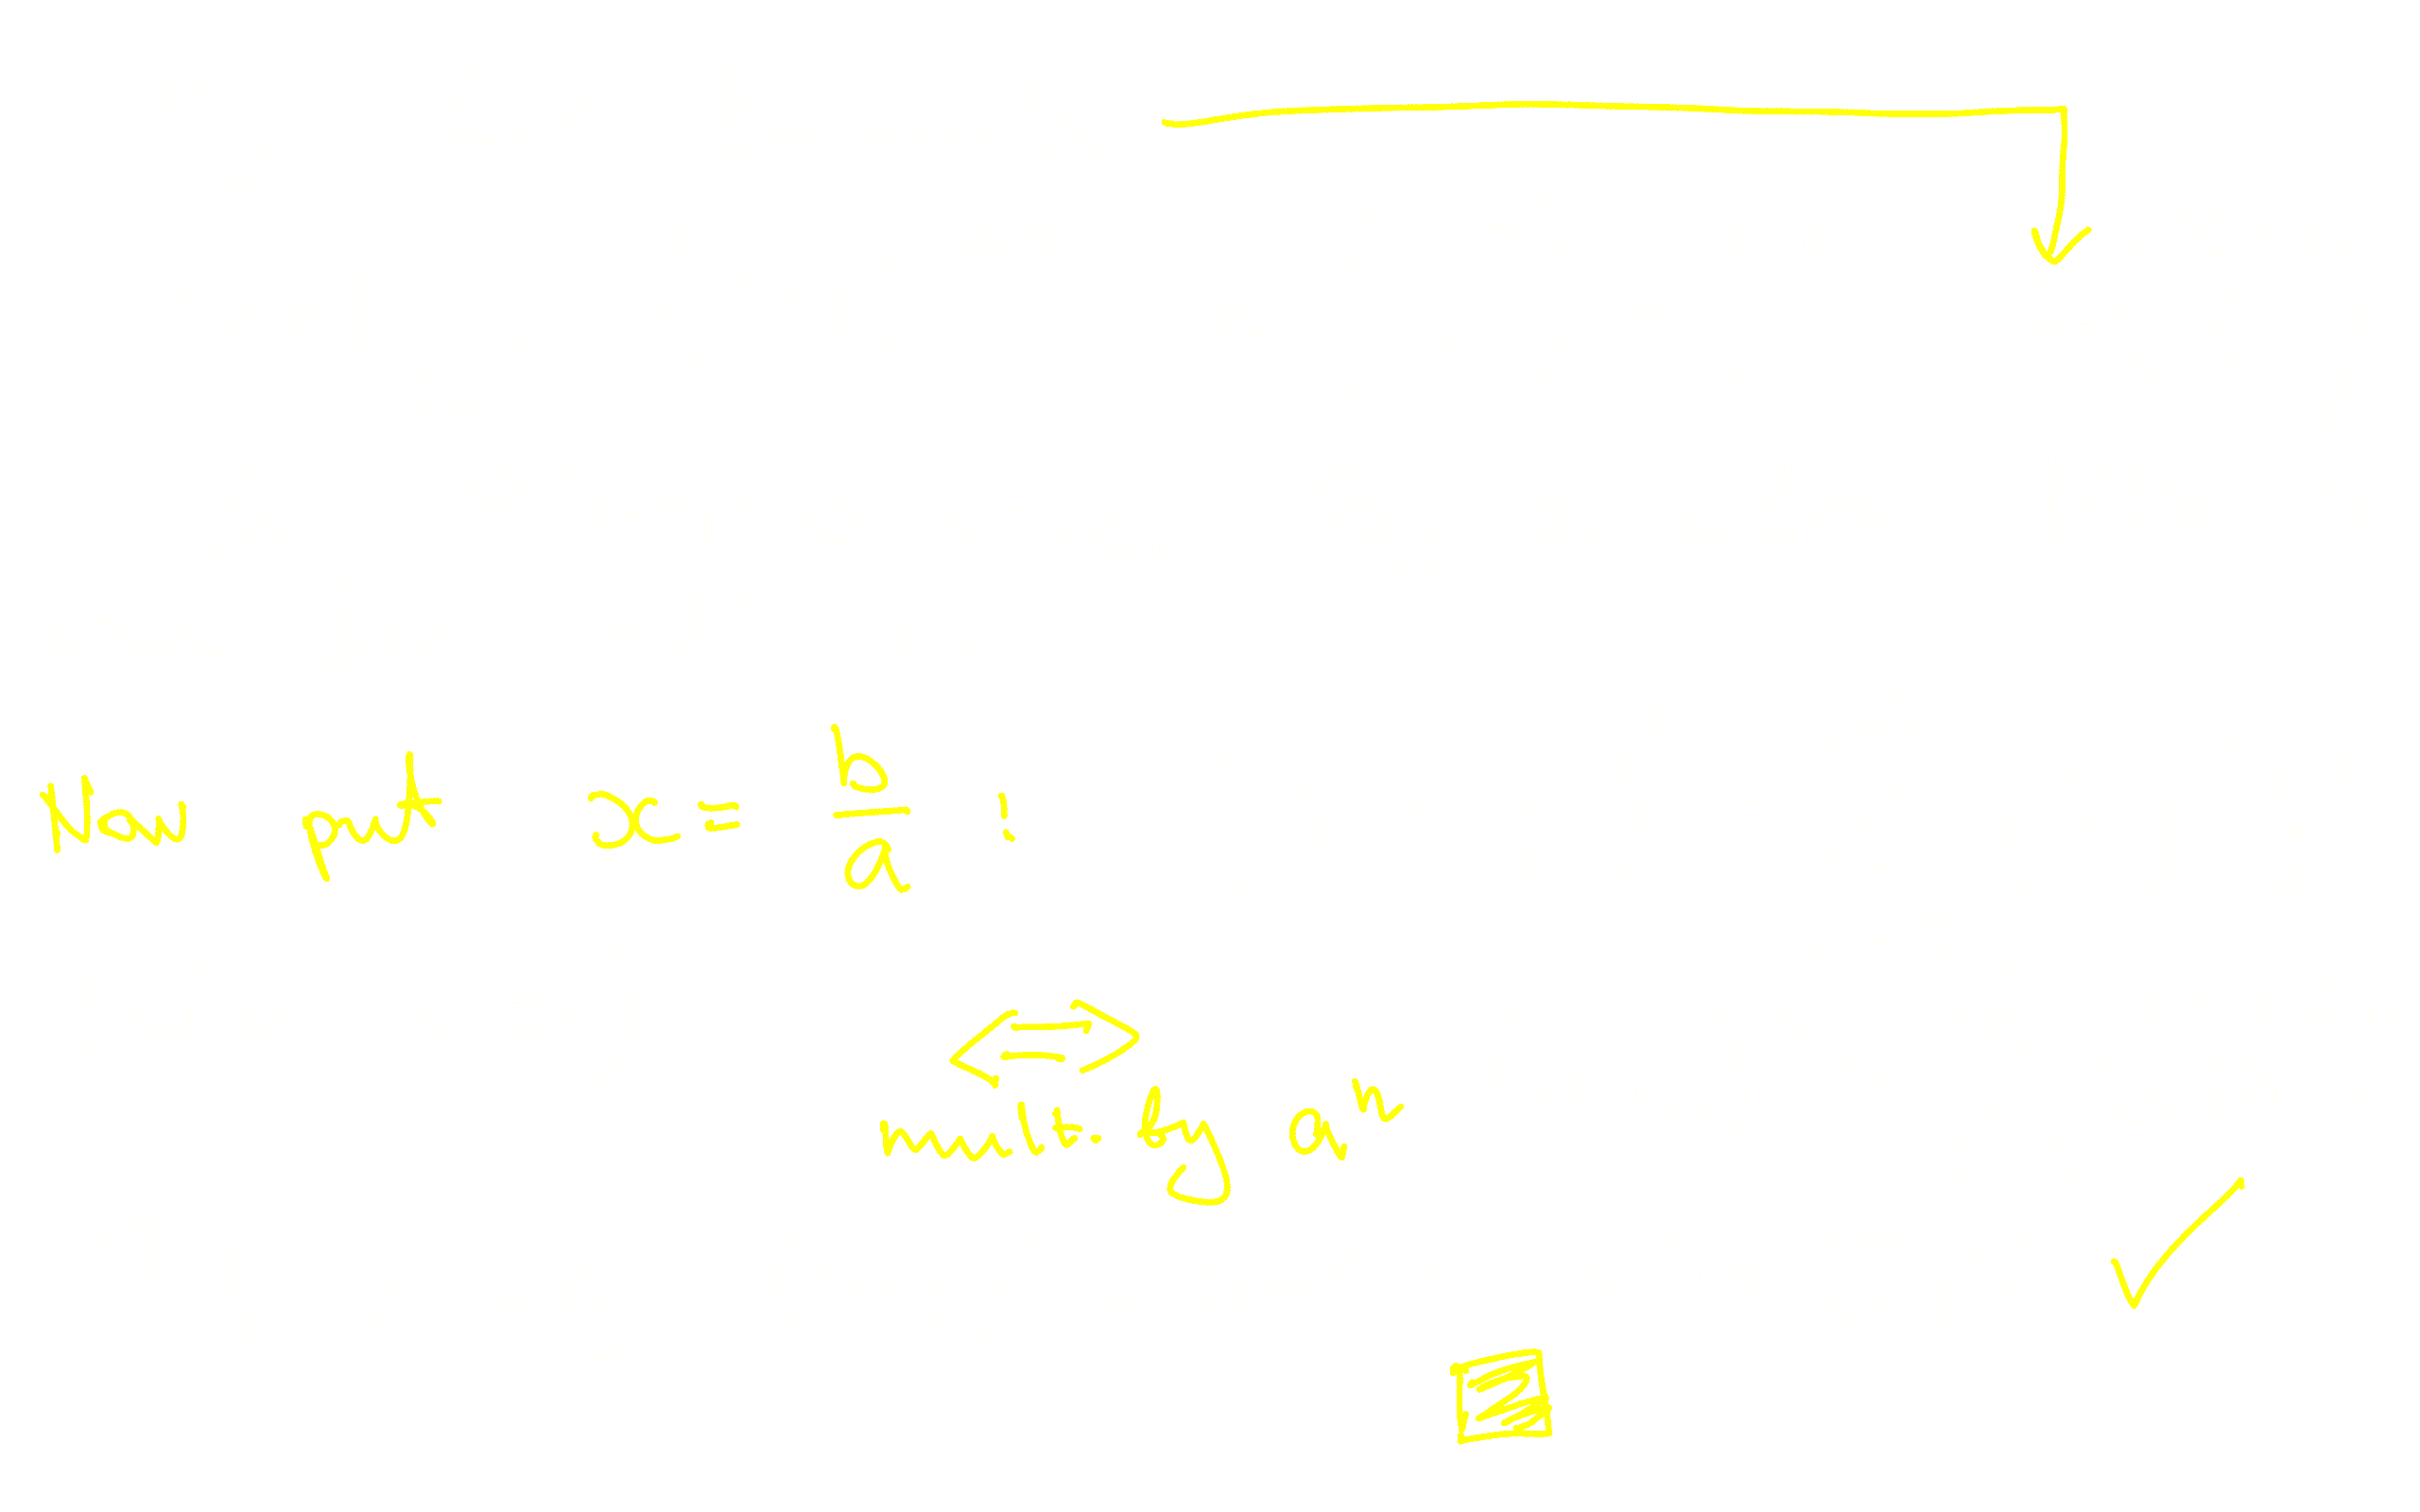 Now put x = b/a :
⟺
mult. by aⁿ